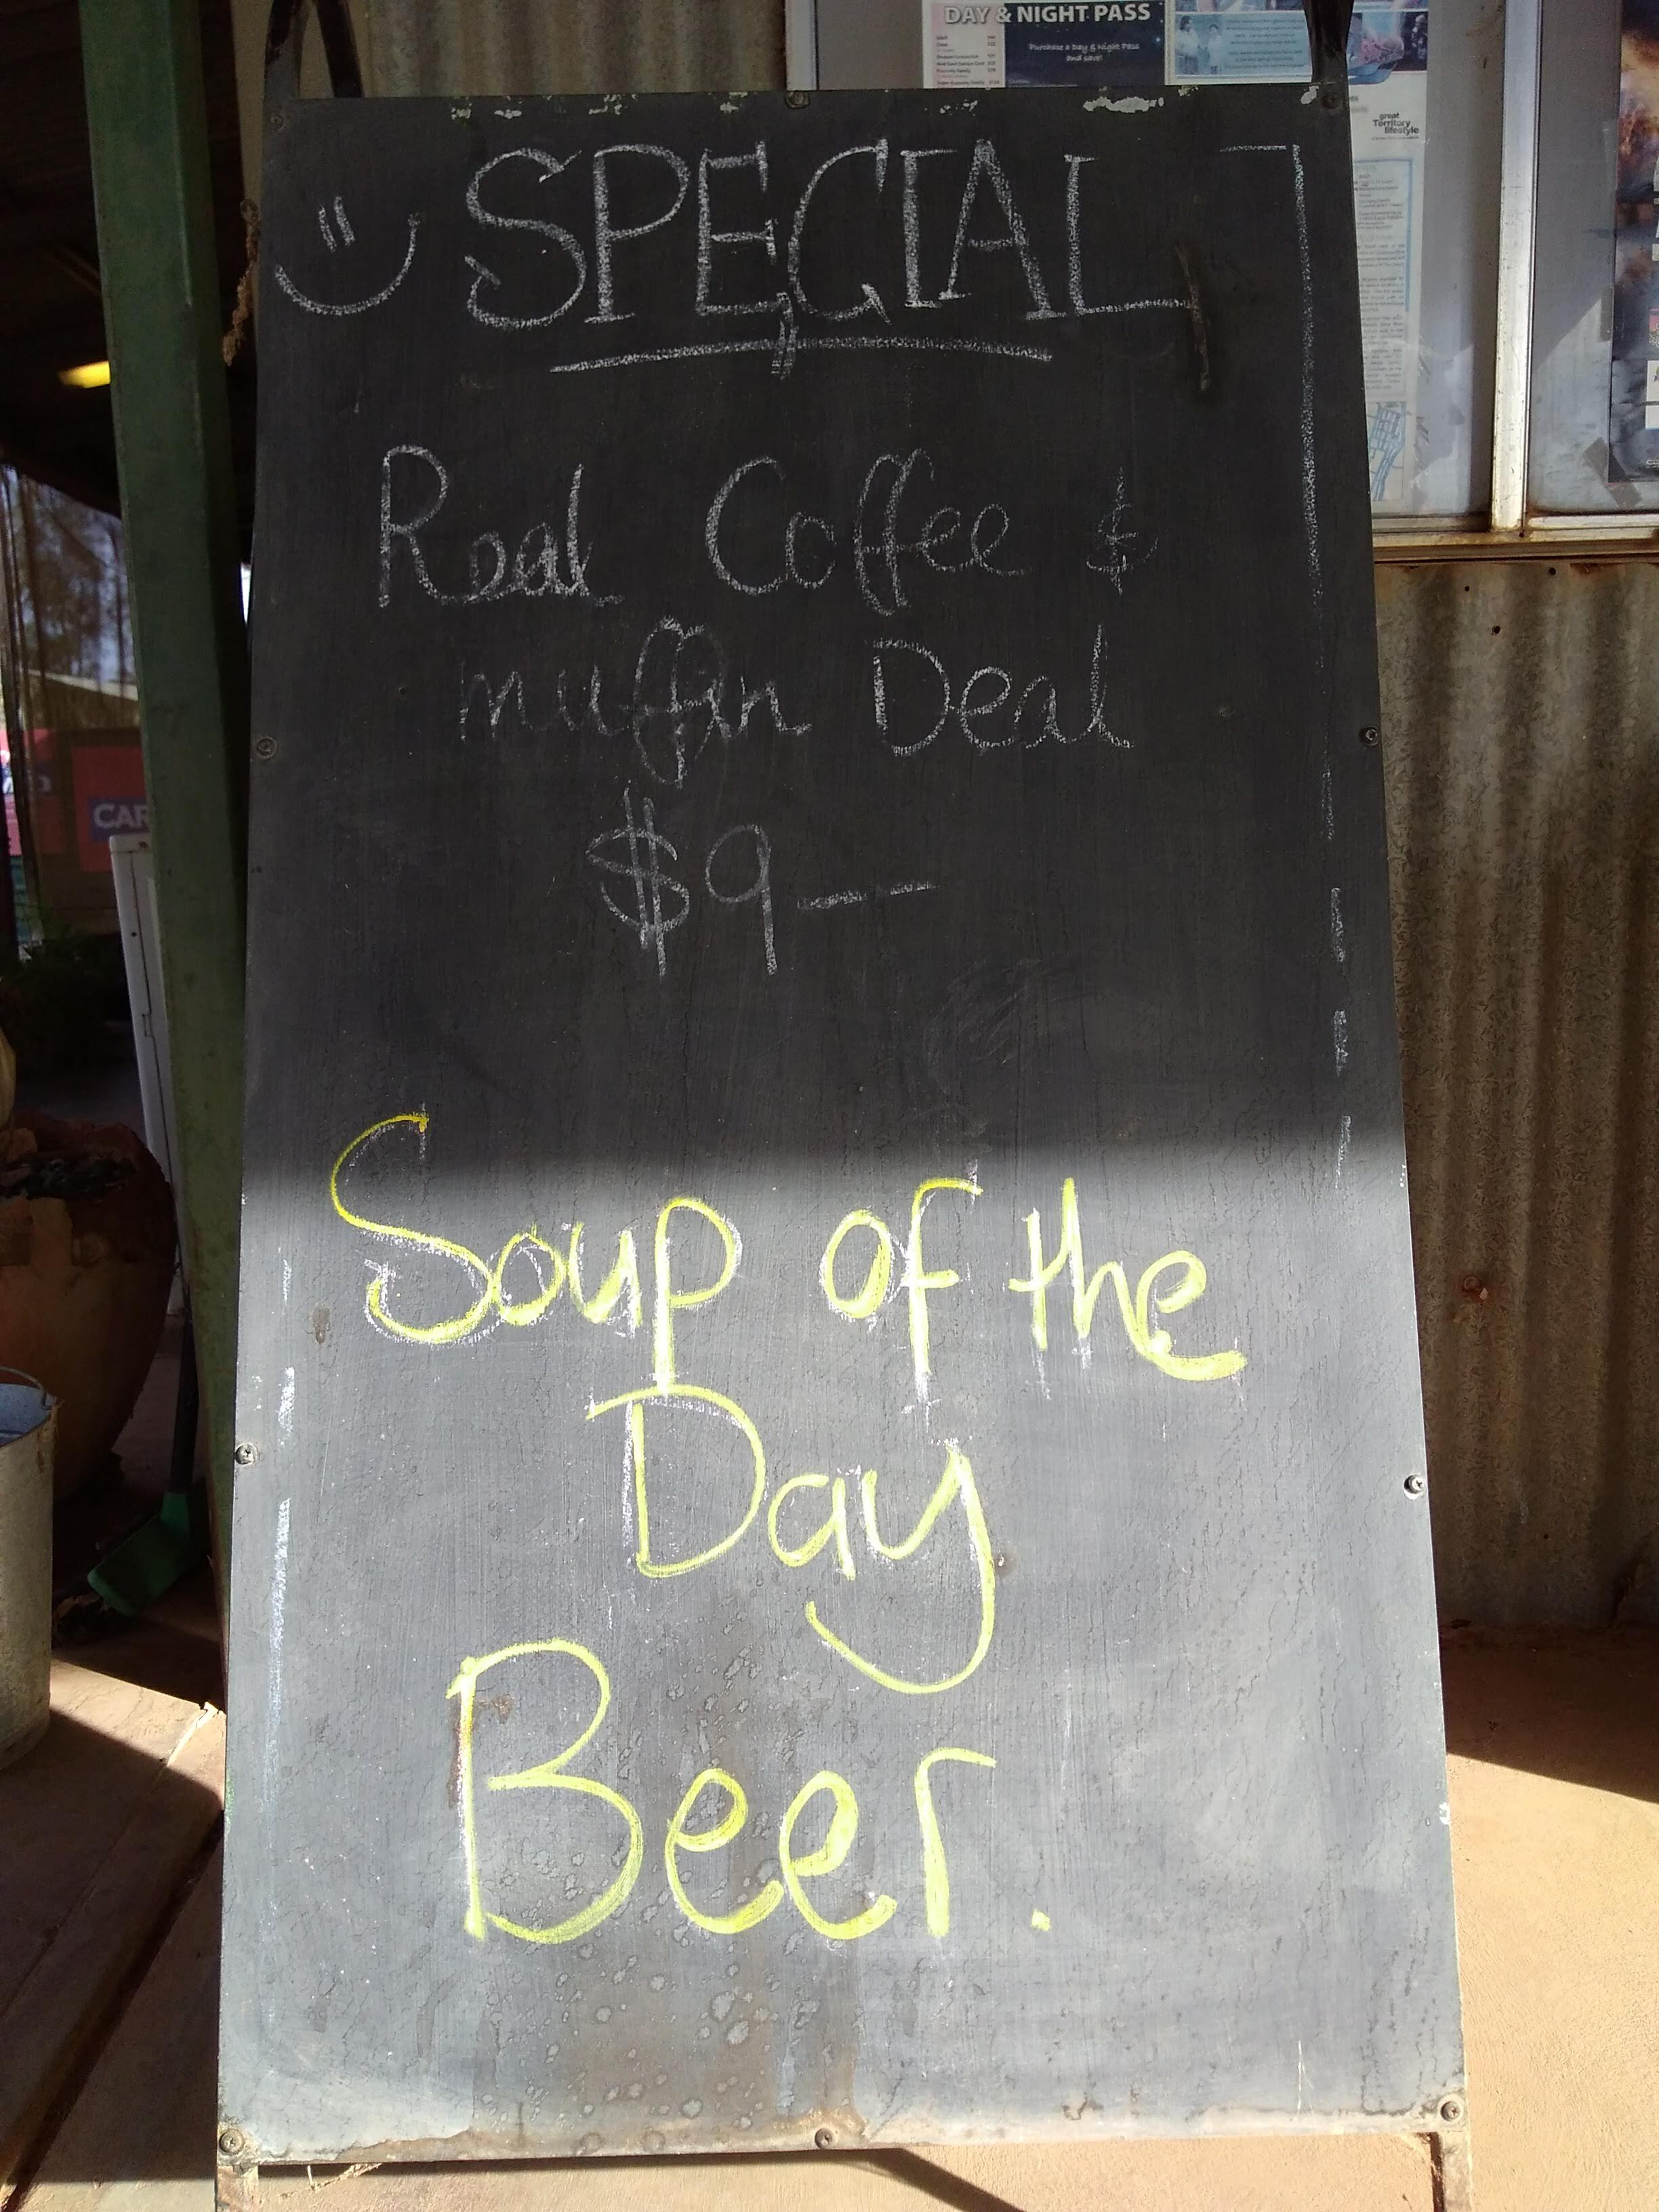 DAY & NIGHT PASS
Purchase a Day & Night Pass
and save!
great
Territory
lifestyle
SPECIAL
Real Coffee &
muffin Deal
$9—
CAR
Soup of the
Day
Beer.